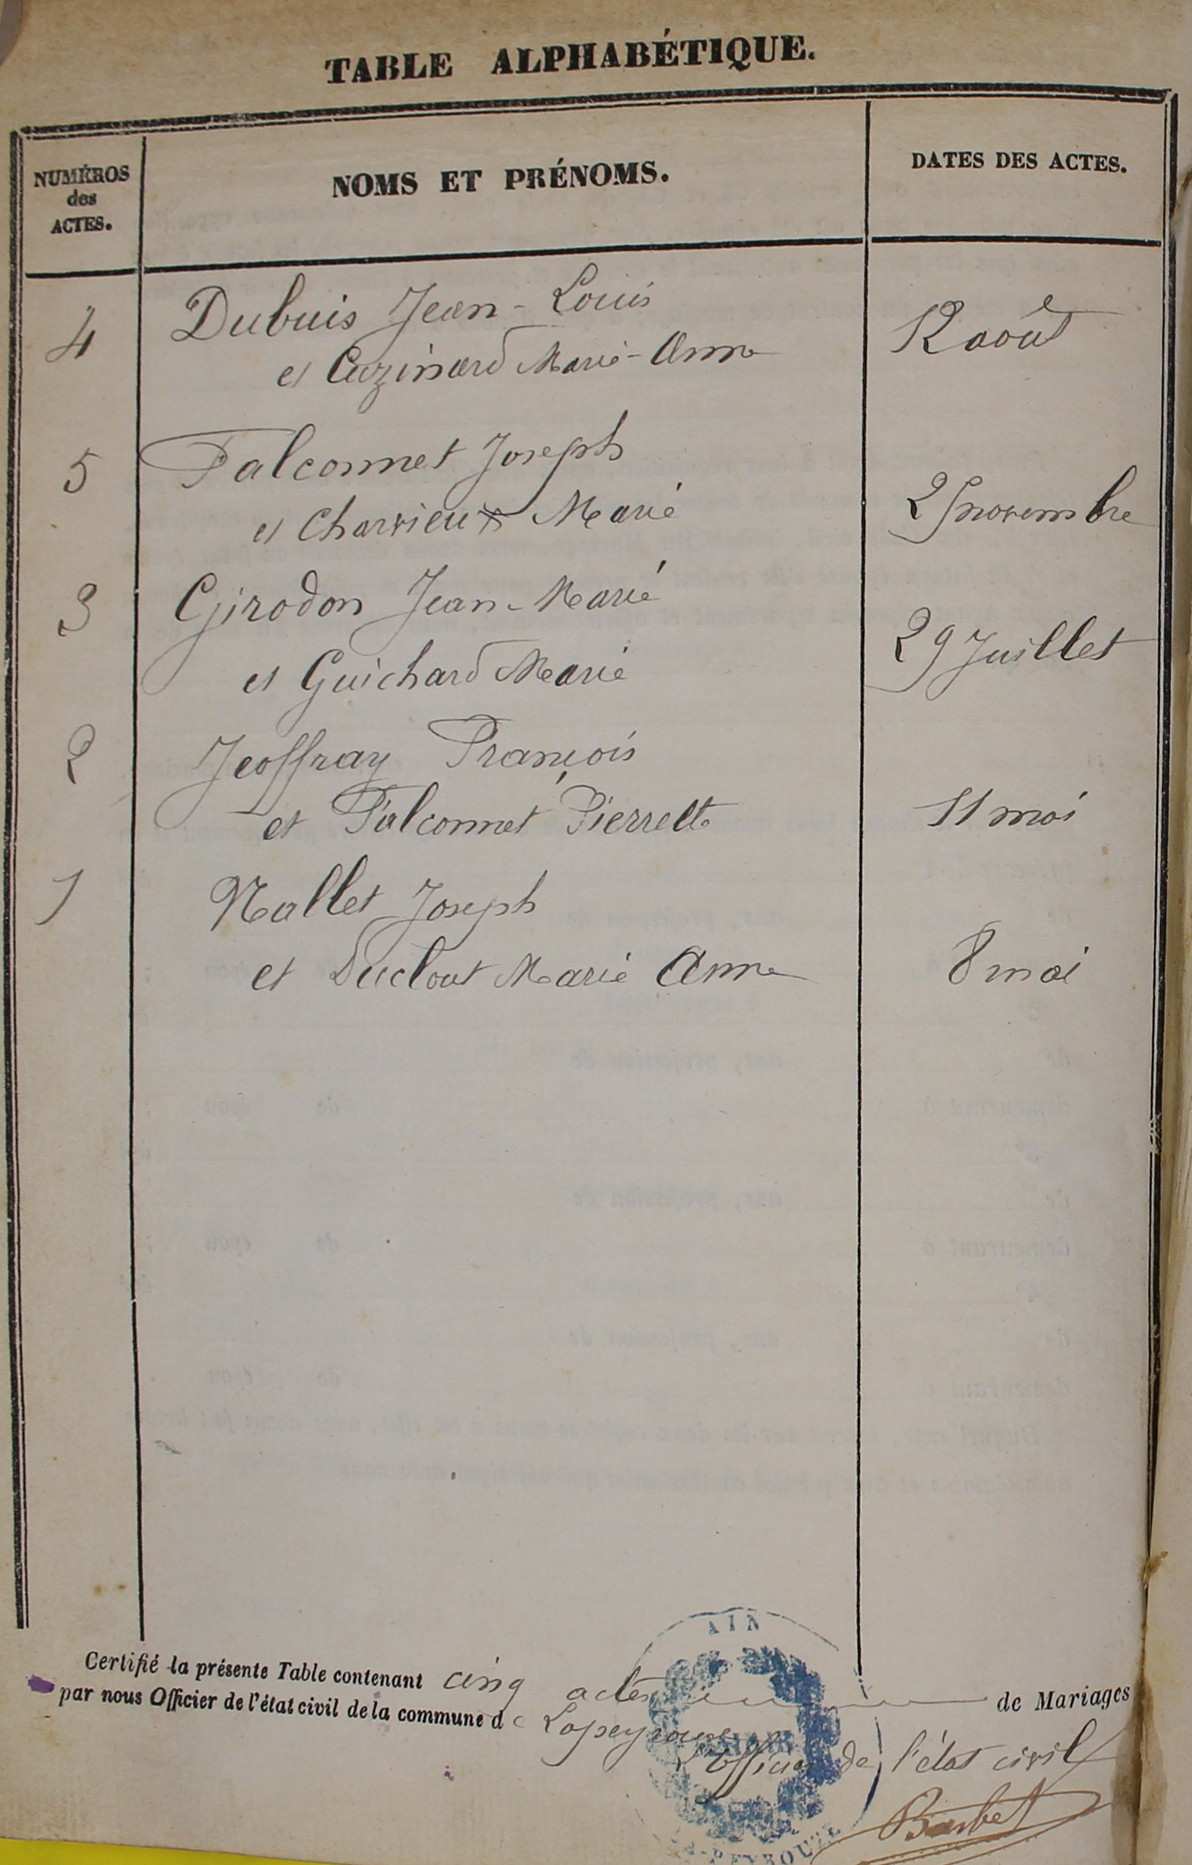 TABLE ALPHABÉTIQUE.
NUMÉROS
des
ACTES.
NOMS ET PRÉNOMS.
DATES DES ACTES.
4 Dubuis Jean-Louis
et Cuzinard Marie-Anne 12 août
5 Falconnet Joseph
et Charvieux Marie 25 novembre
3 Girodon Jean-Marie
et Guichard Marie 29 Juillet
2 Jeoffray François
et Falconnet Pierrette 11 mai
1 Nallet Joseph
et Duclout Marie Anne 8 mai
AIN
Certifié la présente Table contenant cinq actes de Mariages
par nous Officier de l'état civil de la commune de Lapeyrouse
L'officier de l'état civil
Barbet